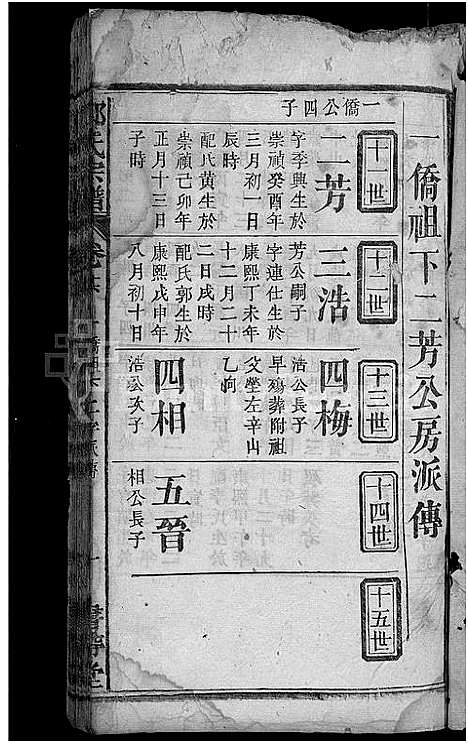 一僑祖下二芳公房派傳
十一世
一僑公四子
二芳
字季興生於
崇禎癸酉年
三月初一日
辰時
配氏黃生於
崇禎己卯年
正月十三日
子時
十二世
三浩
芳公嗣子
字連仕生於
康熙丁未年
十二月二十
二日戌時
配氏郭生於
康熙戊申年
八月初十日
十三世
四梅
浩公長子
早殤葬附祖
父塋左辛山
乙向
四相
浩公次子
十四世
五晉
相公長子
十五世
氏宗譜
卷